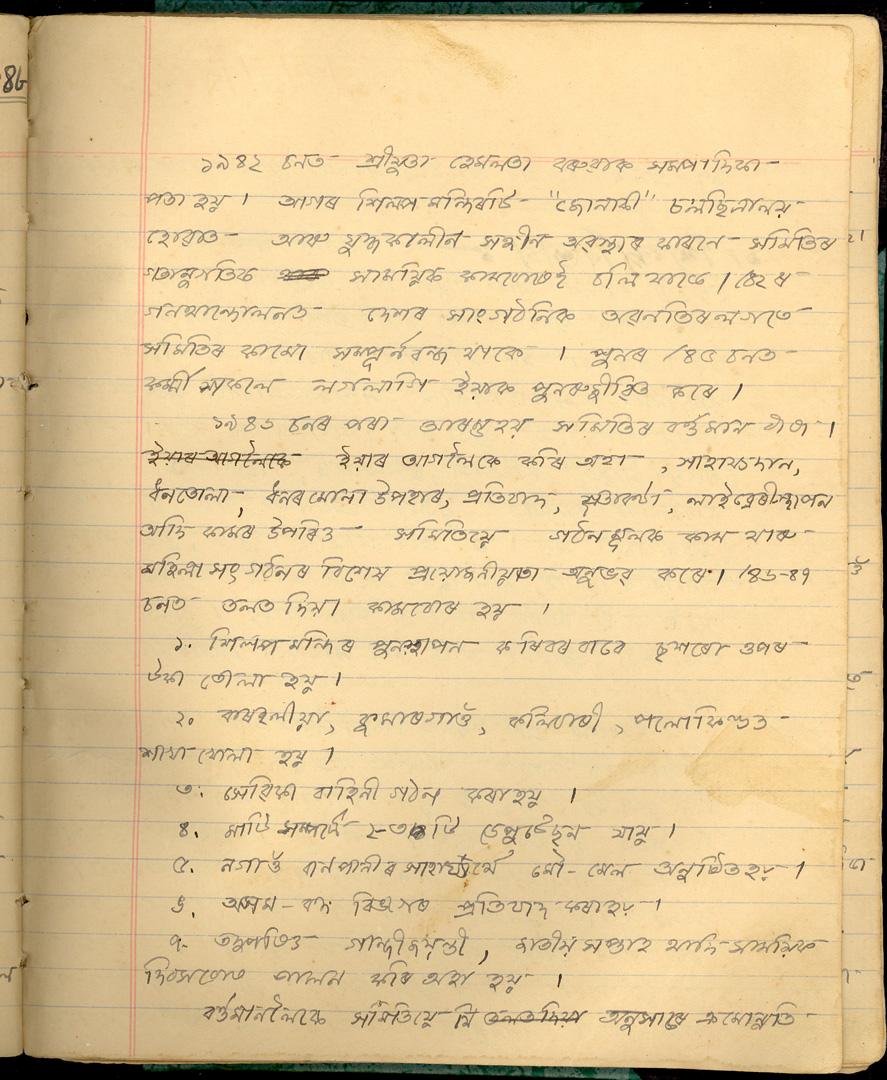 86
১৯৪২ চনত শ্রীযুতা হেমলতা বৰুৱাক সমপাদিকা
পতা হয়। আগৰ শিলপ মন্দিৰটি "জোনাকী" চলচ্চিত্ৰালয়
হোৱাত আৰু যুদ্ধকালীন সঙ্গীন অৱস্থাৰ কাৰনে সমিতিৰ
গতানুগতিক সাময়িক কামবোৰেই চলি থাকে। /৪২ ৰ
গনআন্দোলনত দেশৰ সাংগঠনিক অৱনতিৰ লগতে
সমিতিৰ কামো সম্পূৰ্ন বন্ধ থাকে। পুনৰ /৪৫ চনত
কৰ্ম্মী সকলে লগলাগি ইয়াক পুনৰুজ্জীৱিত কৰে।
১৯৪৬ চনৰ পৰা আৰম্ভ হয় সমিতিৰ বৰ্ত্তমান
ইয়াৰ আগলৈকে ইয়াৰ আগলৈকে কৰি অহা, সাহায্যদান,
ধনতোলা, ধনৰ মোনা উপহাৰ, প্ৰতিবাদ, সূতাকটা, লাইব্ৰেৰী স্থাপন
আদি কামৰ উপৰিও সমিতিয়ে গঠনমূলক কাম আৰু
মহিলা সংগঠনৰ বিশেষ প্ৰয়োজনীয়তা অনুভৱ কৰে। /৪৬-৪৭
চনত তলত দিয়া কামবোৰ হয়।
১. শিলপ মন্দিৰ পুনৰস্থাপন কৰিবৰ বাবে দুশৰো ওপৰ
টকা তোলা হয়।
২. বাৰহলীয়া, কুমাৰগাওঁ, কলিবাৰী,
শাখা খোলা হয়।
৩. সেৱিকা বাহিনী গঠন কৰা হয়।
৪. মাটি সম্পৰ্কে ২-৩ টি ডেপুটেছন যায়।
৫. নগাওঁ বানপানীৰ সাহায্যাৰ্থে মৌ-মেল অনুষ্ঠিত হয়।
৬. অসম-বঙ্গ বিভাগৰ প্ৰতিবাদ কৰা হয়।
৭. তদুপৰিও গান্ধীজয়ন্তী, জাতীয় সপ্তাহ আদি সাময়িক
দিবসবোৰ পালন কৰি অহা হয়।
বৰ্ত্তমানলৈকে সমিতিয়ে যি তলত দিয়া অনুসাৰে ক্ৰমোন্নতি